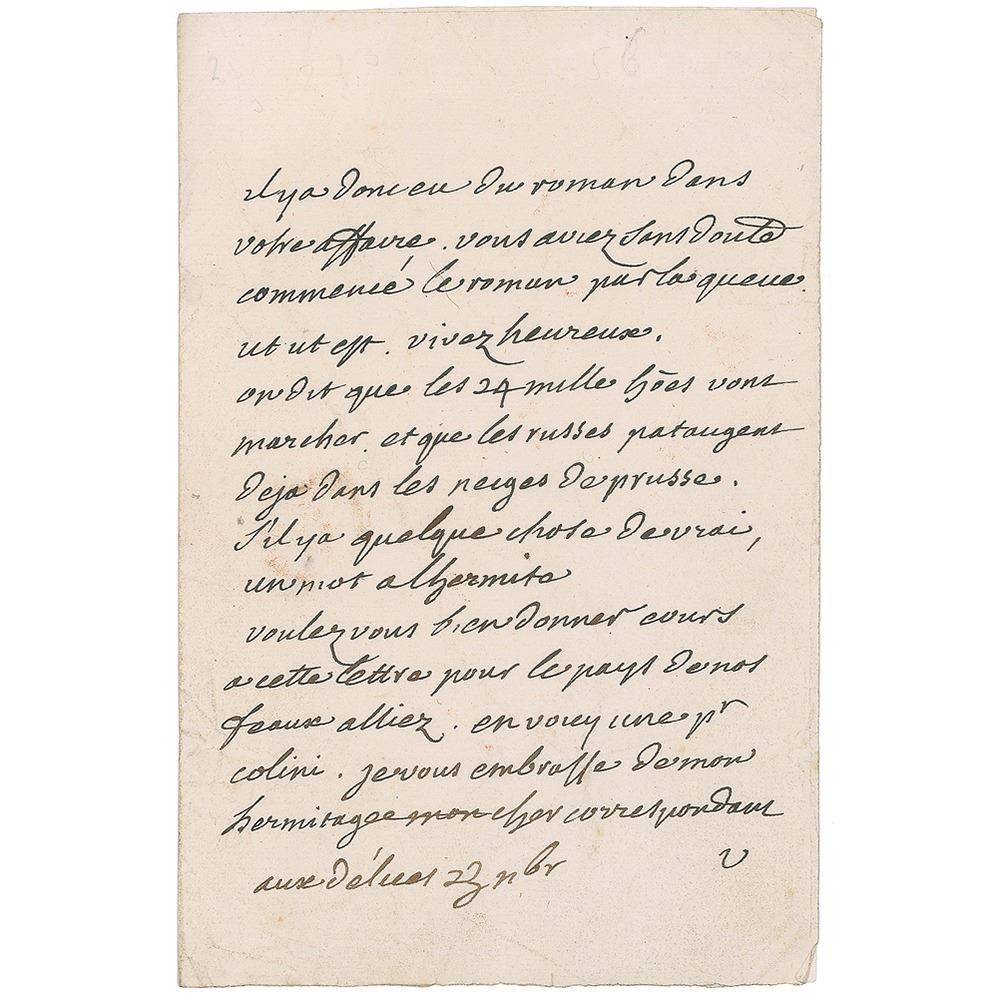 56
il y a donc eu du roman dans
votre affaire. vous aviez sans doute
commencé le roman par la queue.
ut ut est. vivez heureux.
on dit que les 24 mille hões vont
marcher. et que les russes pataugent
deja dans les neiges de prusse.
s'il y a quelque chose de vrai,
un mot a lhermite
voulez vous bien donner cours
a cette lettre pour le pays de nos
feaux alliez. en voicy une pr
colini. je vous embrasse de mon
hermitage mon cher correspondant
aux délices 23 nbr
V